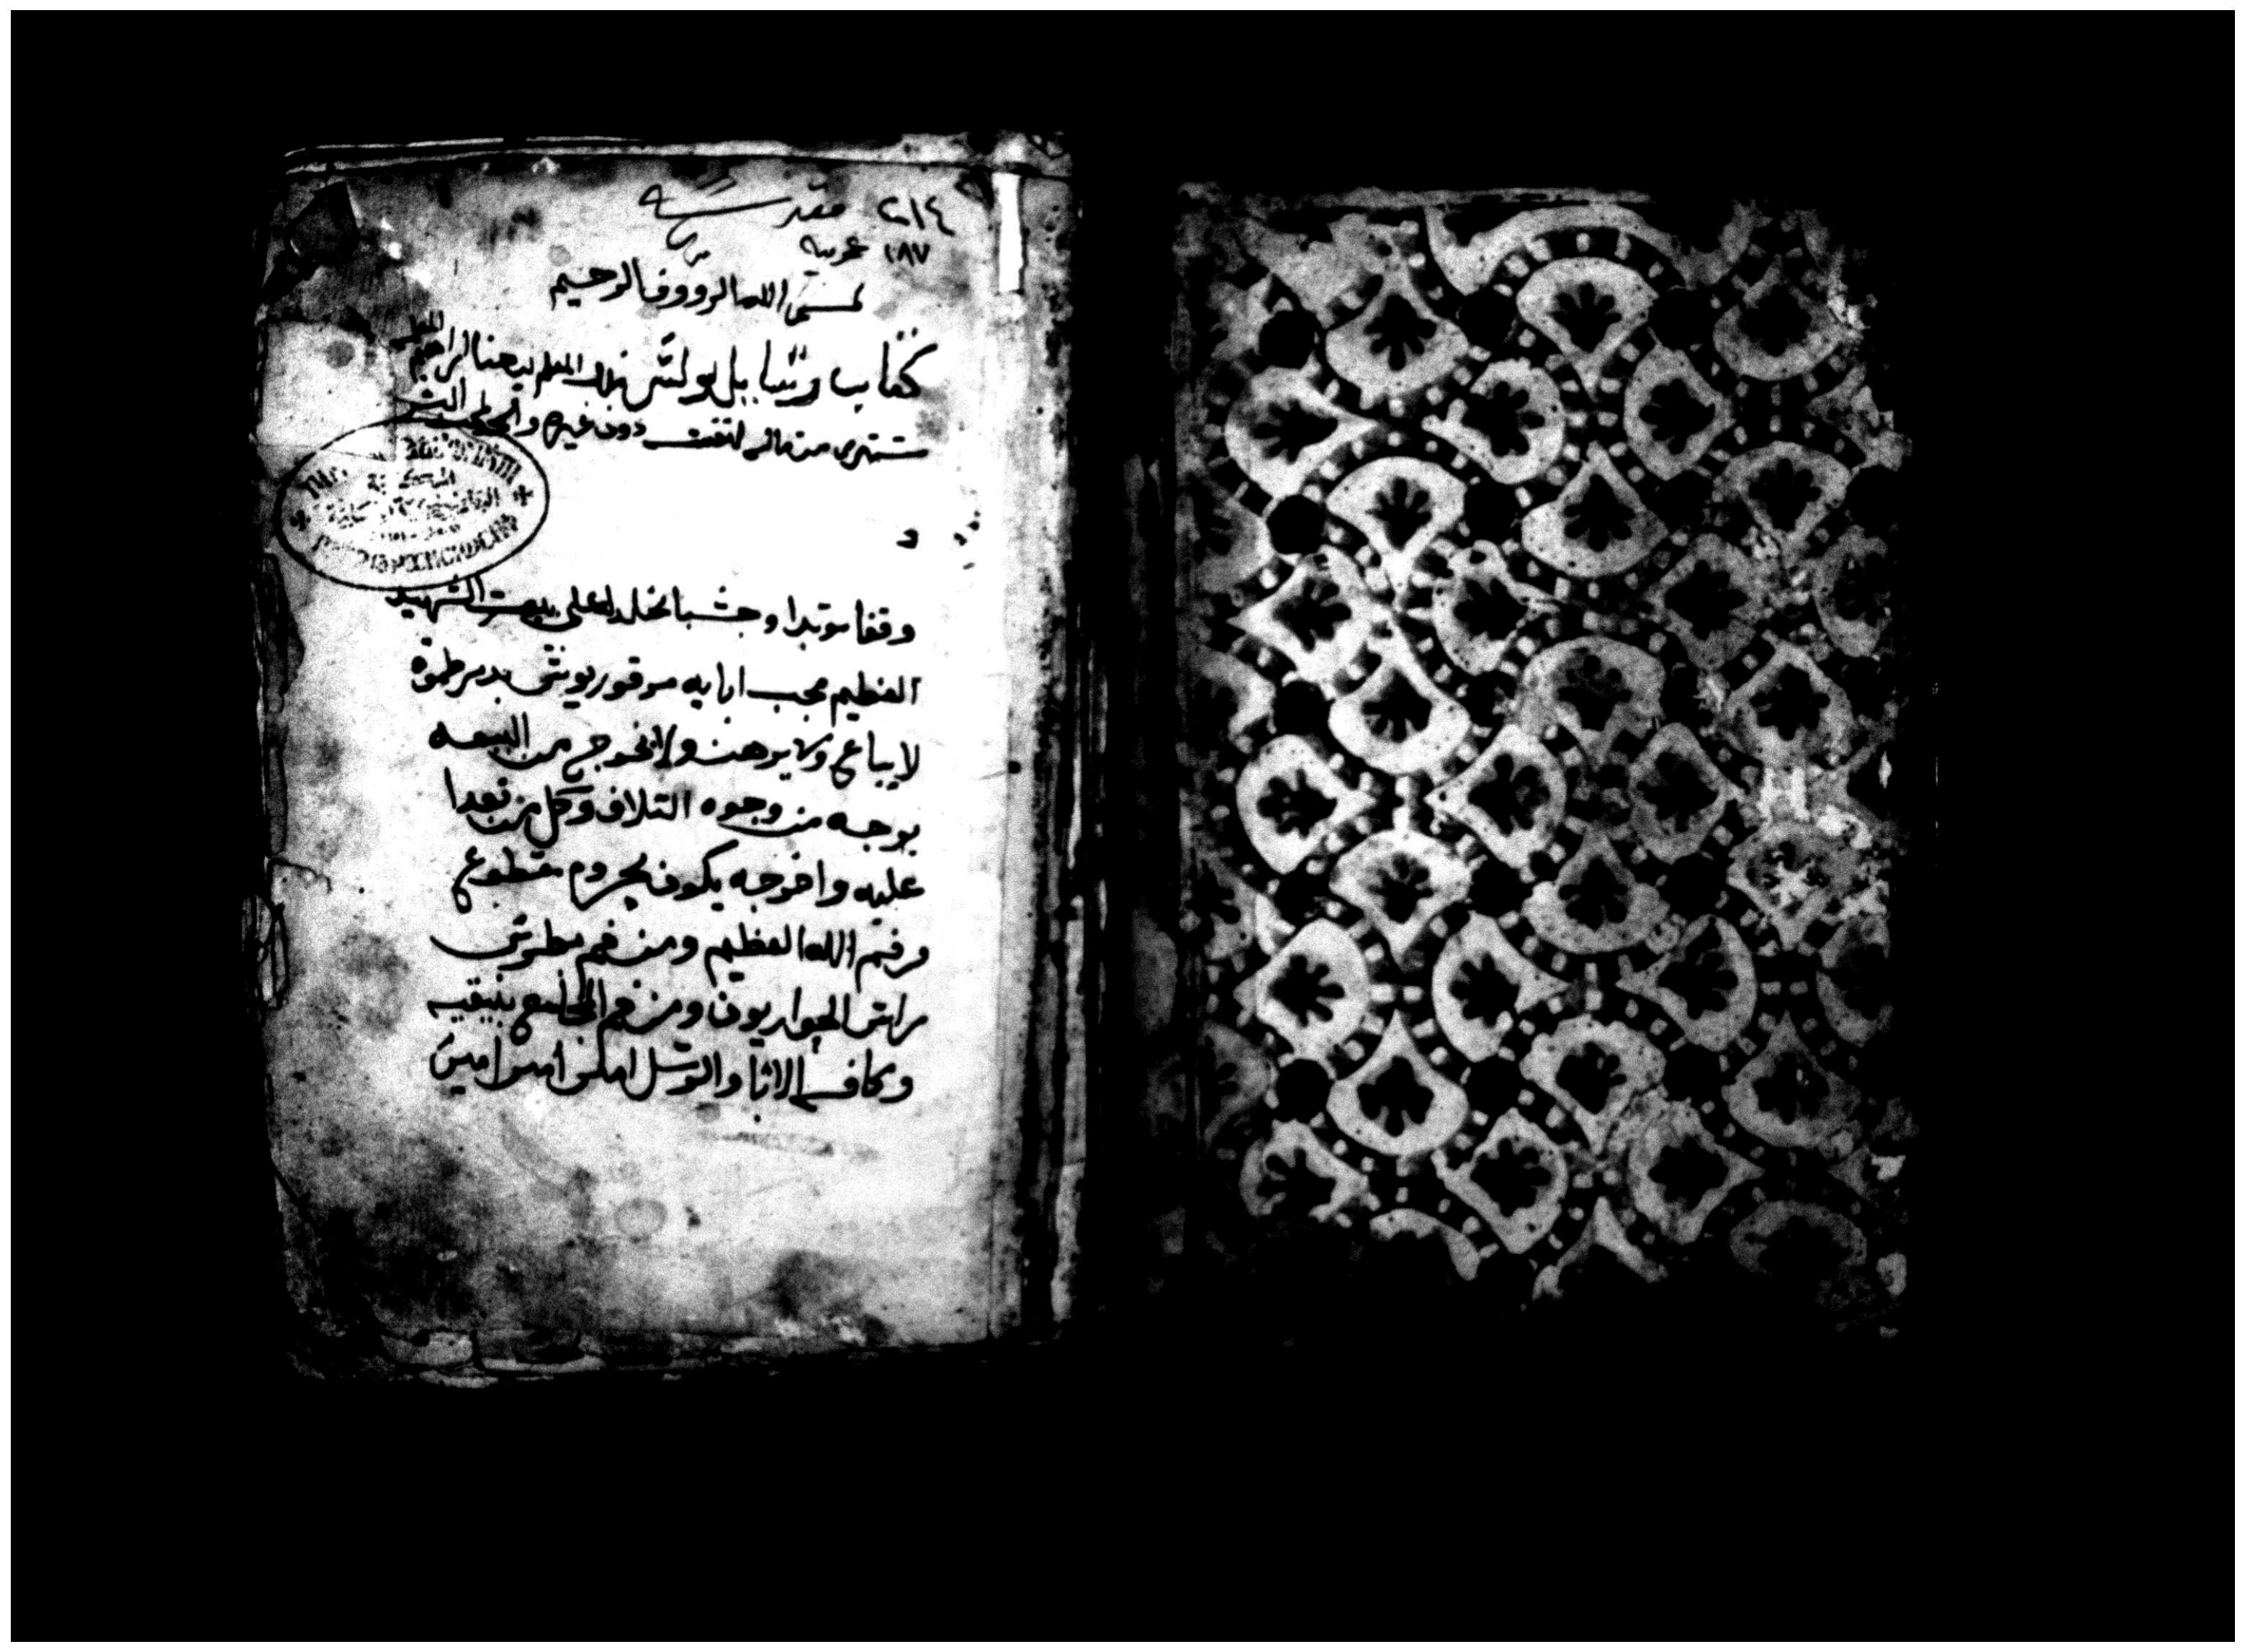 ٢١٤ مقدسة
١٨٧ عربيه
بسم الله الرووف الرحيم
كتاب رسايل بولس المعلم يوحنا ابراهيم
مشترى من ماله لنفسه دون غيره
وقفا موبدا وحبسا مخلدا على بيعت الشهيد
العظيم محب ابايه مرقوريوس بدير طموه
لا يباع ولا يرهن ولا يخرج من البيعه
بوجه من وجوه التلاف وكل من تعدا
عليه واخرجه يكون محروم مقطوع
من فم الله العظيم ومن فم بطرس
راس الحواريون ومن فم المجامع بنيقيه
وكافه الابا والرسل امين امين امين